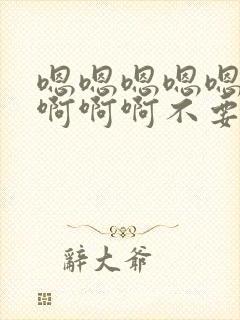 嗯嗯嗯嗯嗯
啊啊啊不要
辞大爷